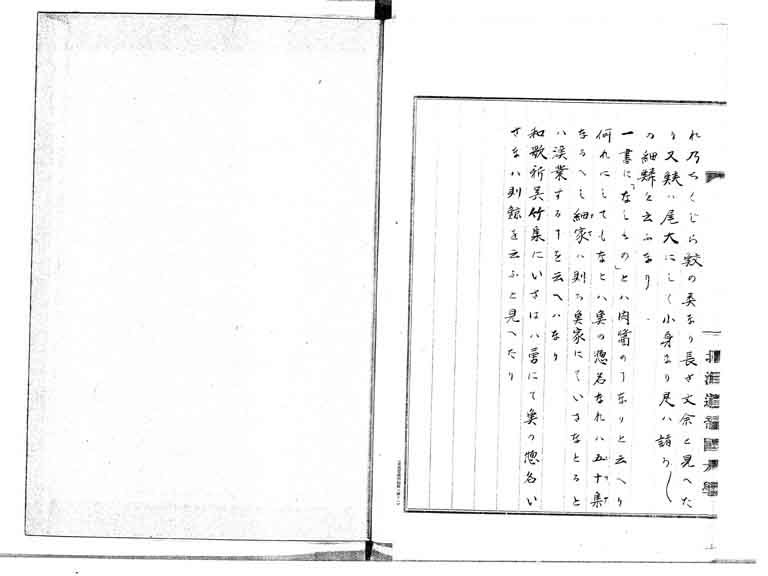 れ乃ちくじら鮫の美なり長サ丈余と見へた
り又鮫ハ尾大にして小身なり尾ハ諸
の細鱗と云ふなり
一書に「なしもの」とハ肉醤の下なりと云へり
何れにしてもなとハ魚の惣名なれハ五十集
なるへし細家ハ則ち魚家にていさなとると
ハ漁業する下を云へハなり
和歌祈呉竹集にいさはハ 魚の惣名い
さなハ則鯨を云ふと見へたり
北海道帝国大学